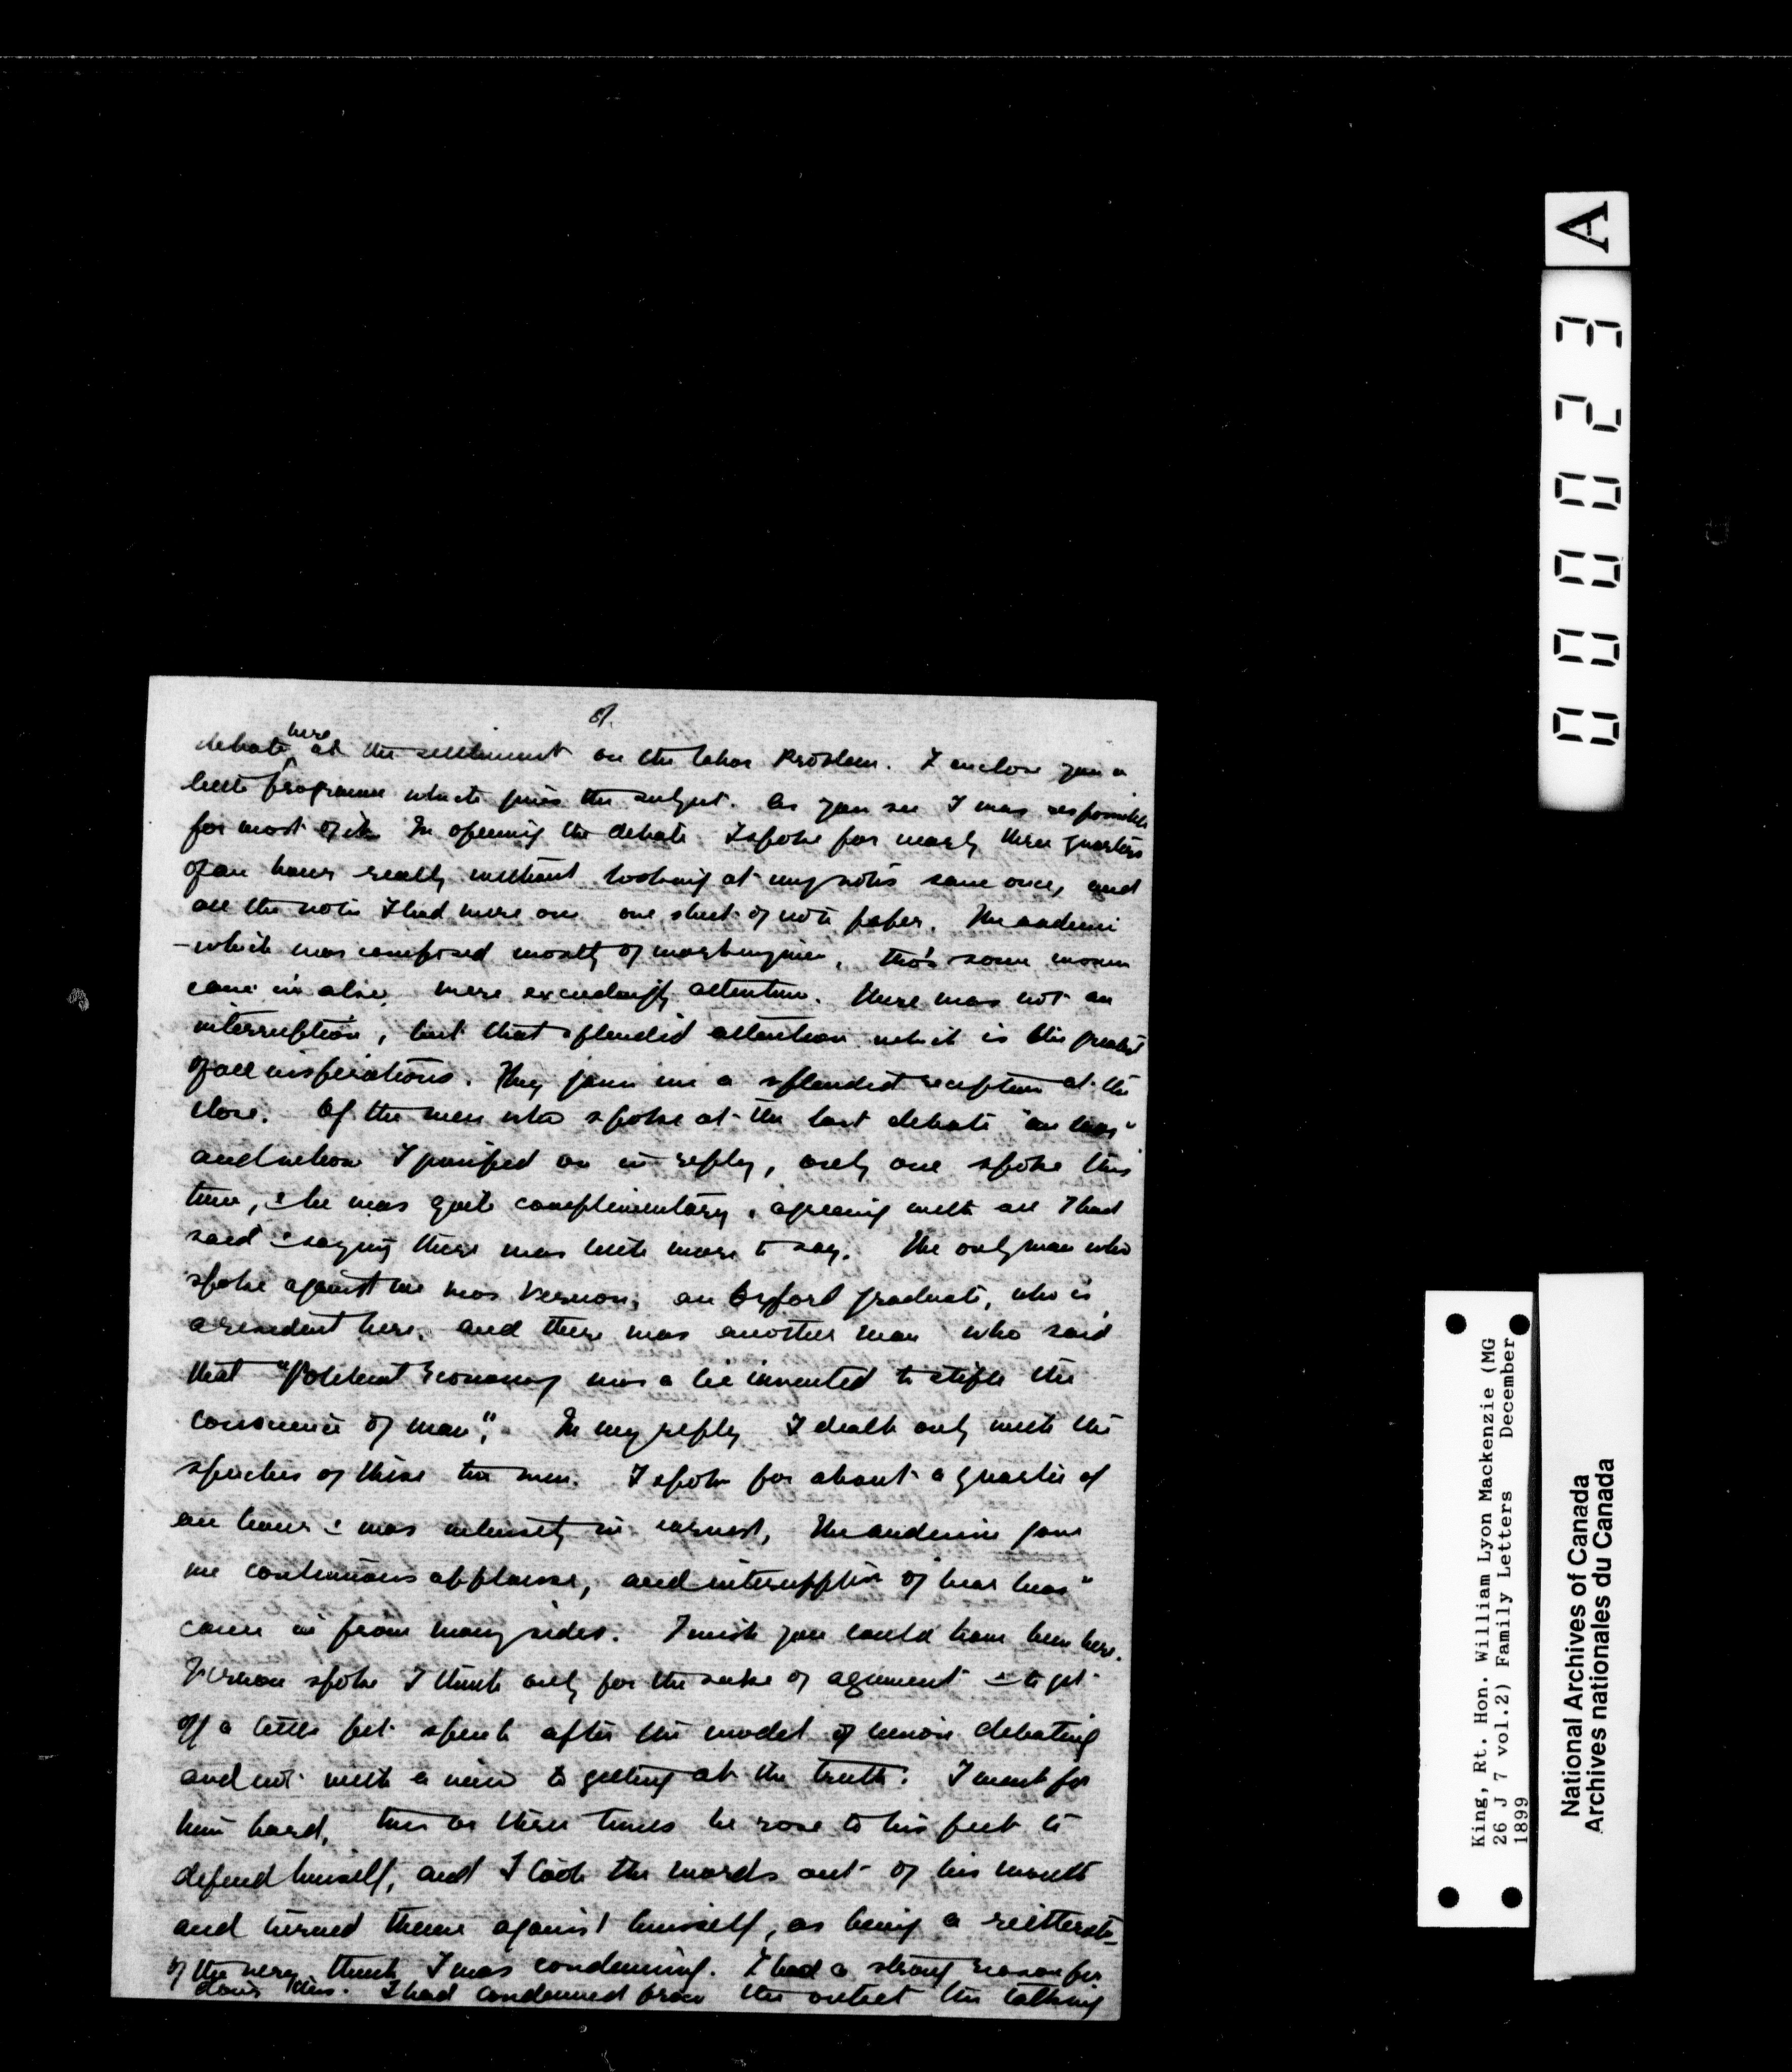 8.
debate here at the settlement on the labor Problem. I enclose you a
little programme which gives the subject. As you see I was responsible
for most of it. In opening the debate I spoke for nearly three quarters
of an hour really without looking at my notes save once, and
all the notes I had were on one sheet of note paper. The audience
- which was composed mostly of workingmen, tho' some women
came in also, were exceedingly attentive. There was not an
interruption, but that splendid attention which is the greatest
of all inspirations. They gave me a splendid reception at the
close. Of the men who spoke at the last debate
and whom I jumped on in reply, only one spoke this
time, & he was quite complimentary, agreeing with all I had
said & saying there was little more to say. The only man who
spoke against me was Vernon, an Oxford graduate, who is
a resident here, and there was another man who said
that "Political Economy was a lie invented to stifle the
conscience of man". In my reply I dealt only with the
speeches of these two men. I spoke for about a quarter of
an hour & was intensely in earnest, The audience gave
me continuous applause, and interruption of hear hear"
came in from many sides. I wish you could have been here.
Vernon spoke I think only for the sake of agument & to get
off a little set speech after the model of union debating
and not with a view to getting at the truth. I went for
him hard, two or three times he rose to his feet to
defend himself, and I took the words out of his mouth
and turned them against himself, as being a reitterate-
of the very thing I was condemning. I had a strong reason for
doing this. I had condemned from the outset the talking
A
000023
King, Rt. Hon. William Lyon Mackenzie (MG
26 J 7 vol.2) Family Letters December
1899
National Archives of Canada
Archives nationales du Canada